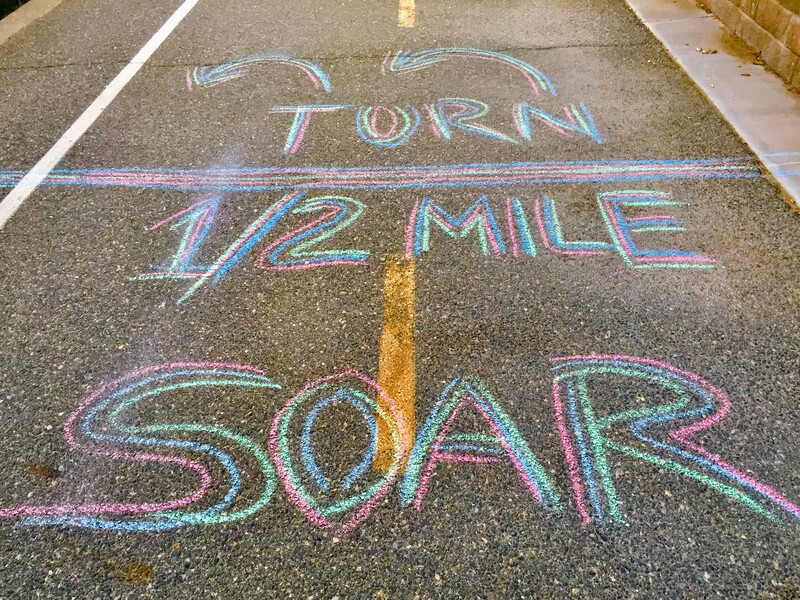 TURN
1/2 MILE
SOAR